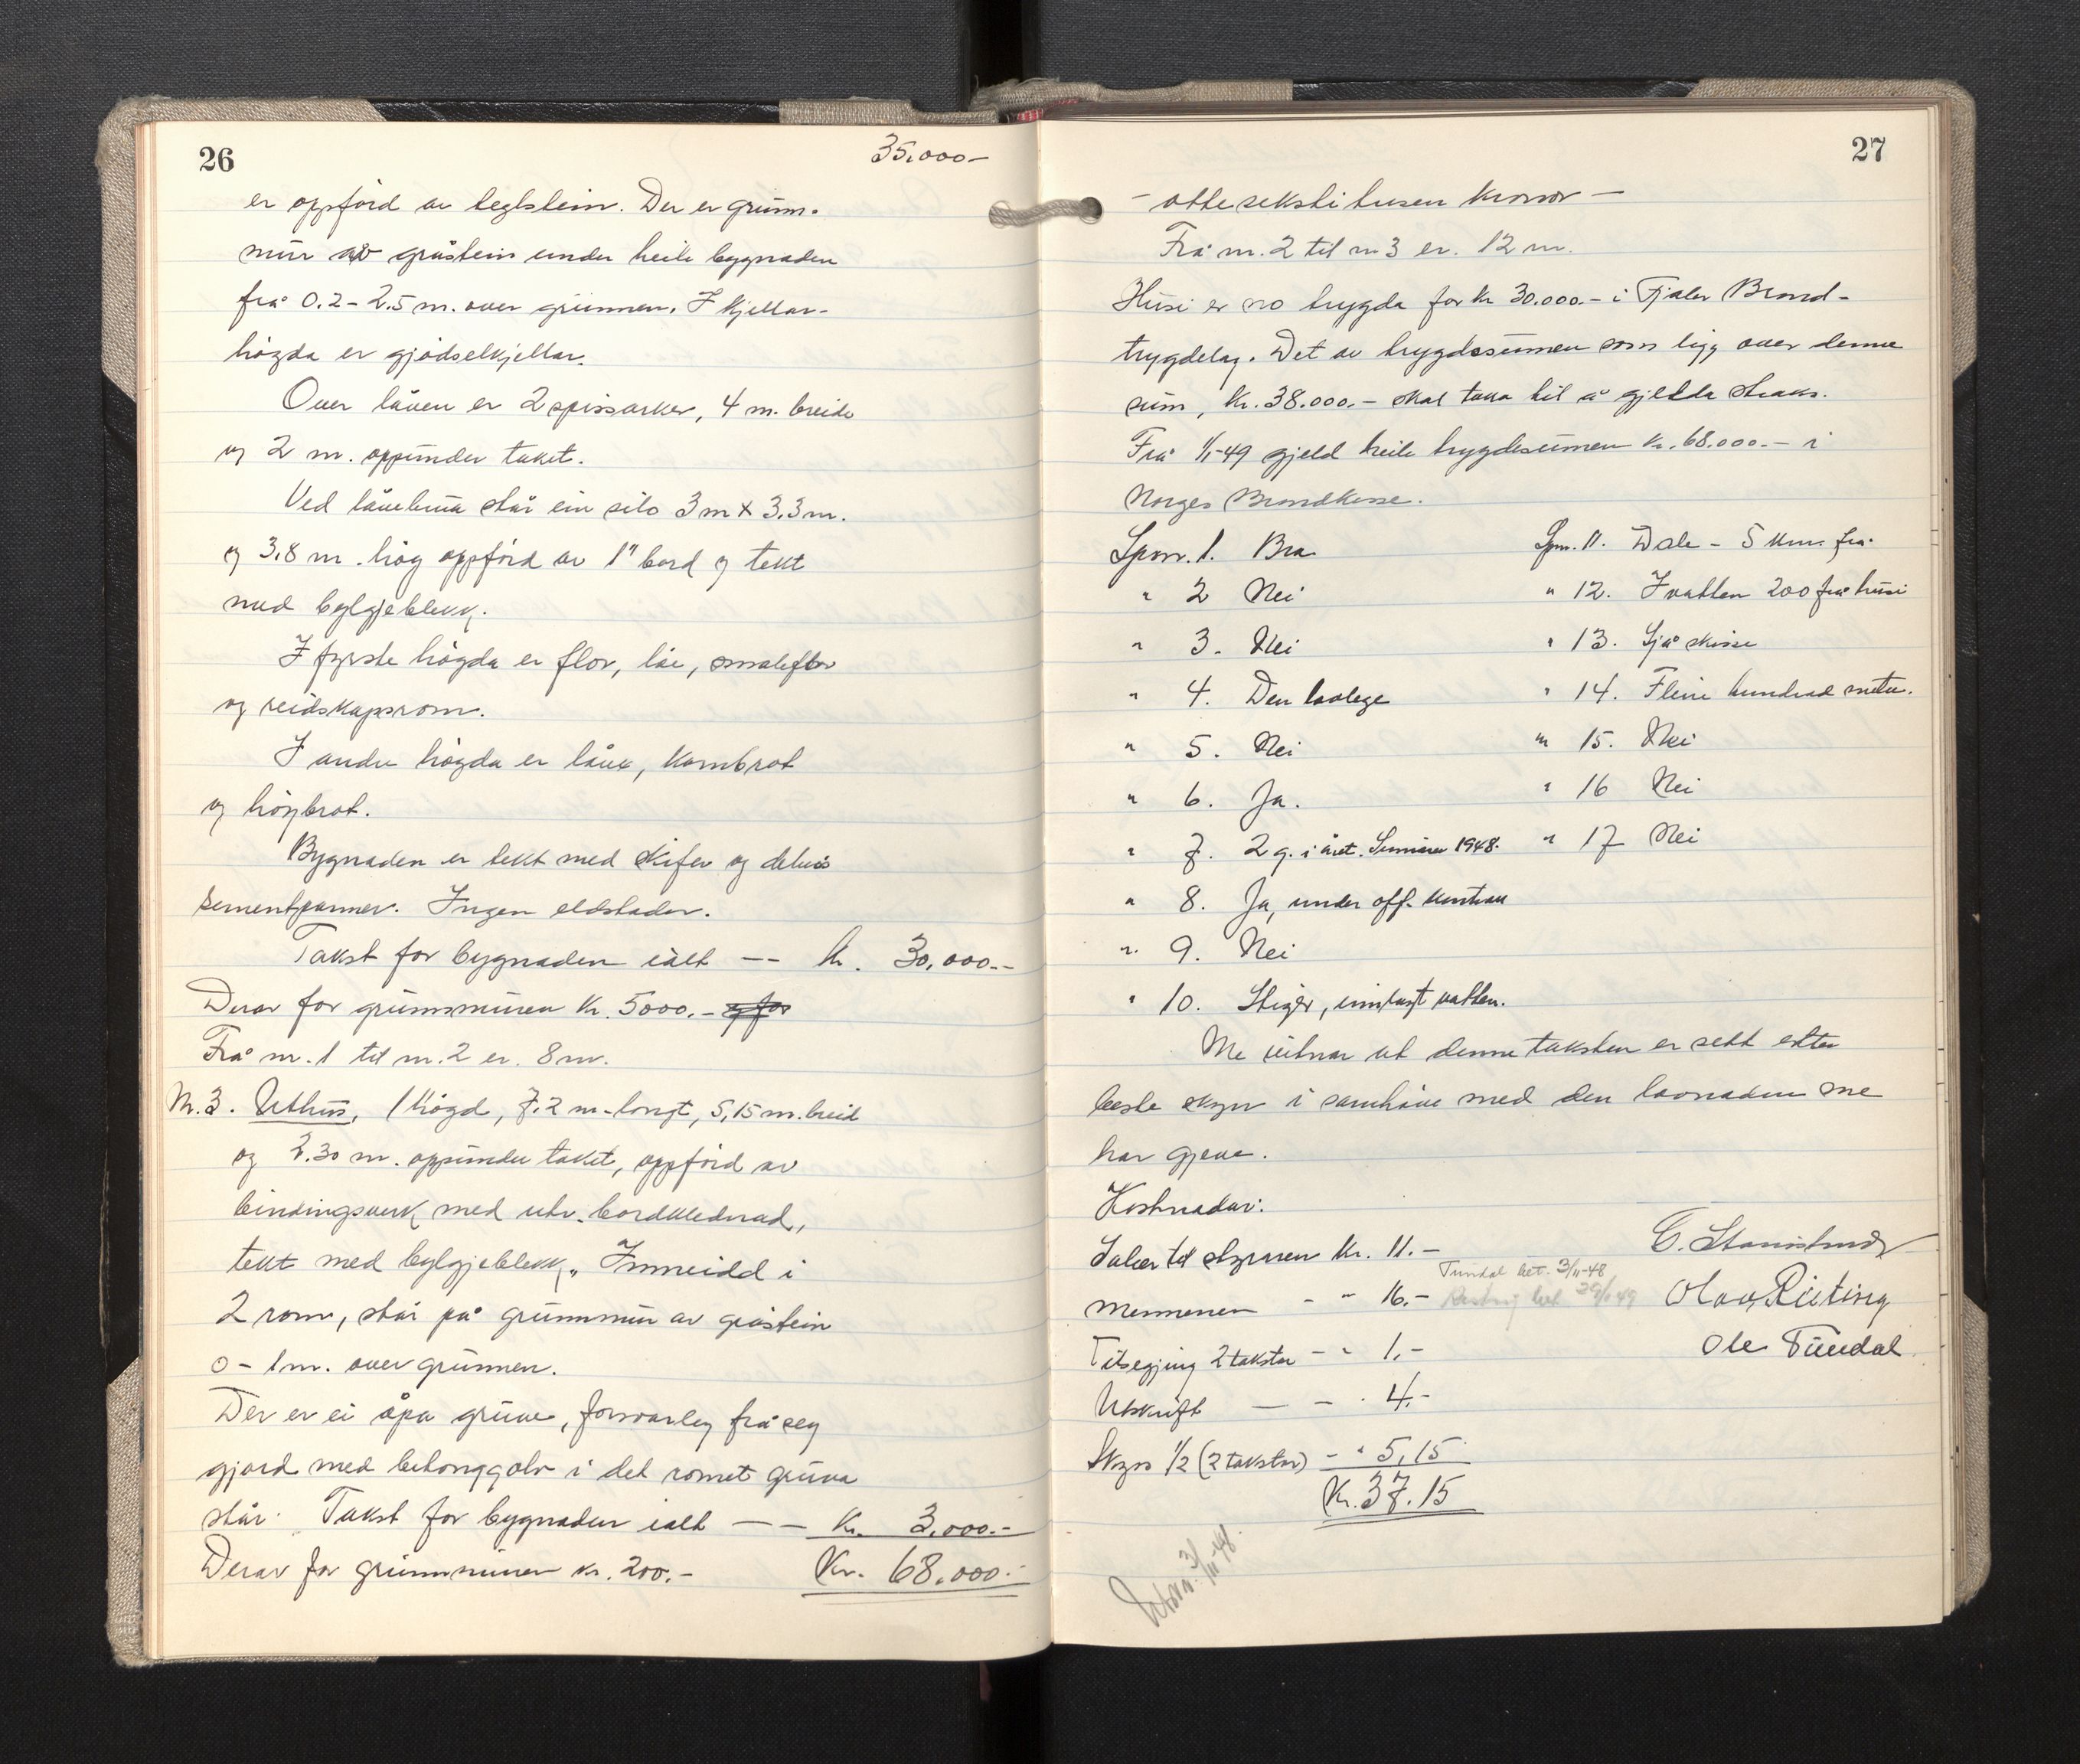 26
35.000-
er oppförd av teglstein. Der er grunn-
mur av gråstein under heile bygnaden
frå 0.2 - 2.5 m. over grunnen. I kjellar-
högda er gjödselkjellar.
Over låven er 2 spissarker, 4 m. breide
og 2 m. oppunder taket.
Ved låvebrua står ein silo 3 m x 3.3 m.
og 3.8 m. høg oppförd av 1" bord og tekt
med bylgjeblekk.
I fyrste högda er flor, löe, smaleflor
og reidskapsrom.
I andre högda er låve, kornbrot
og höybrot.
Bygnaden er tekt med skifer og delvis
sementpanner. Ingen eldstader.
Takst for bygnaden ialt -- kr. 30.000.--
Derav for grunnmuren kr. 5000.- og for
Frå nr. 1 til nr. 2 er 8 m.
Nr. 3. Uthus, 1 högd, 7.2 m. langt, 5,15 m. breid
og 2.30 m. oppunder taket, oppförd av
bindingsverk med utv. bordklednad,
tekt med bylgjeblekk. Innreidd i
2 rom, står på grunnmur av gråstein
0 - 1 m. over grunnen.
Der er ei åpa gruve, forsvarleg frå seg
gjord med betonggolv i det romet gruva
står. Takst for bygnaden ialt -- Kr. 3.000.-
Derav for grunnmuren kr. 200.- Kr. 68.000.-
27
- åtteseksti tusen kronor -
Frå nr. 2 til nr 3 er 12 m.
Husi er no trygda for kr 30.000.- i Fjaler Brand-
trygdelag. Det av trygdesumen som ligg over denne
sum, kr. 38.000.- skal taka til å gjelda straks.
Frå 1/1-49 gjeld heile trygdesumen kr. 68.000.- i
Norges Brandkasse.
Spm. 1. Bra Spm. 11. Dale - 5 km. frå
" 2 Nei " 12. I vatten 200 frå husi
" 3. Nei " 13. Sjå skisse
" 4. Den lovlege " 14. Fleire hundrad meter.
" 5. Nei " 15. Nei
" 6. Ja. " 16 Nei
" 7. 2 g. i året. Sumaren 1948. " 17 Nei
" 8. Ja, under off. kontroll
" 9. Nei
" 10. Stiger, innlagt vatten.
Me vitnar at denne taksten er sett etter
beste skyn i samhöve med den lovnaden me
har gjeve.
Kostnadar:
Salær til styraren kr. 11.-
Tundal bet. 3/11-48
mennene - " 16.-
Tilsegjing 2 takstm - " 1.-
Utskrift - - " 4.-
Skyss 1/2 (2 takster) - " 5,15
Kr. 37.15
Olav Rivting
Ole Tundal
3/11-48.